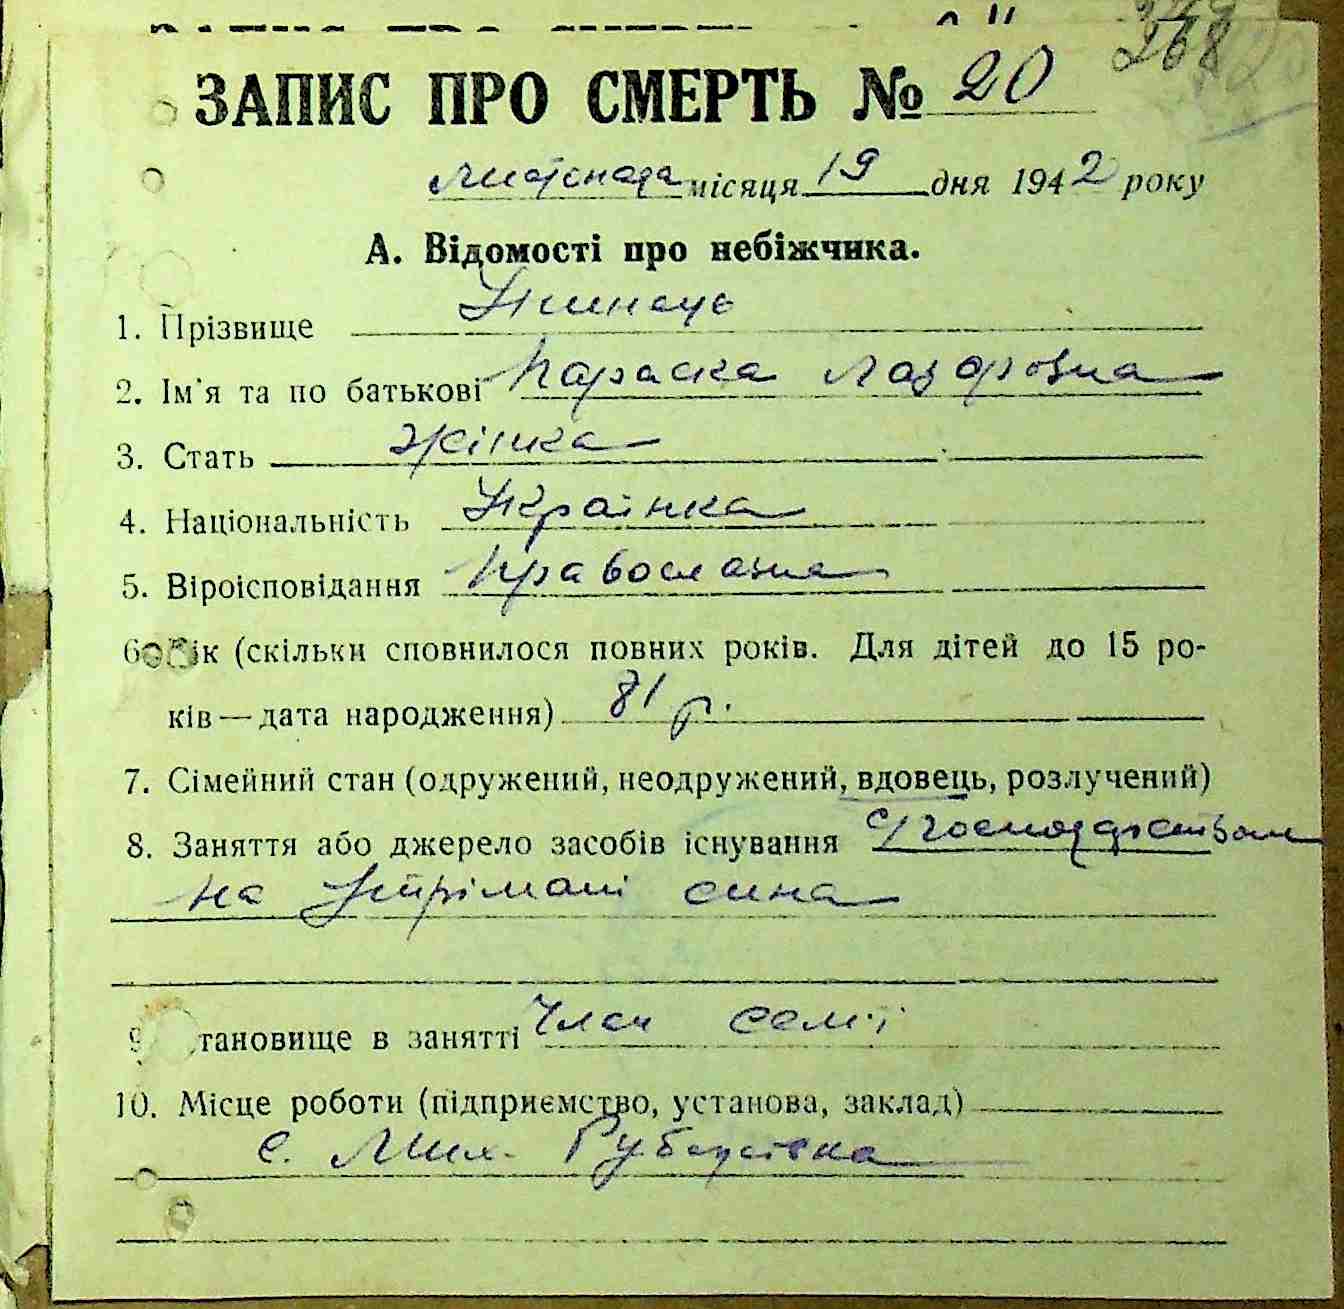 268
ЗАПИС ПРО СМЕРТЬ № 20
листопада місяця 19 дня 1942 року
А. Відомості про небіжчика.
1. Прізвище
2. Ім'я та по батькові Параска Лазоровна
3. Стать жінка
4. Національність Українка
5. Віроісповідання Православна
6. Вік (скільки сповнилося повних років. Для дітей до 15 ро-
ків — дата народження) 81 р.
7. Сімейний стан (одружений, неодружений, вдовець, розлучений)
8. Заняття або джерело засобів існування
на утрімані сина
9. тановище в занятті Член семї
10. Місце роботи (підприємство, установа, заклад)
с. Мих. Рубаусівка